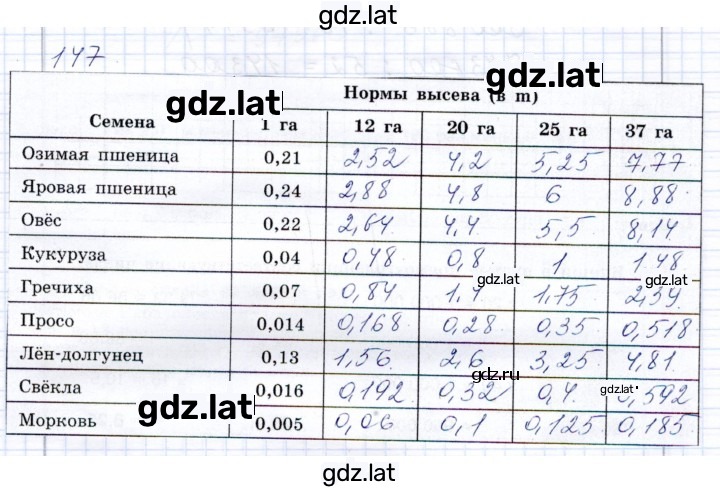 gdz.lat
147
gdz.lat
Семена Нормы высева (в т)
1 га 12 га 20 га 25 га 37 га
Озимая пшеница 0,21 2,52 4,2 5,25 7,77
Яровая пшеница 0,24 2,88 4,8 6 8,88
Овёс 0,22 2,64 4,4 5,5 8,14
Кукуруза 0,04 0,48 0,8 1 1.48
gdz.lat gdz.lat
Гречиха 0,07 0,84 1.75
Просо 0,014 0,168 0,28 0,35 0,518
gdz.lat
Лён-долгунец 0,13 1,56 2,6 3,25 4,81
gdz.ru
Свёкла 0,016 0,192 0,32 0,4 ,592
gdz.lat
gdz.lat
Морковь 0,005 0,06 0,1 0,125 0,185
gdz.lat